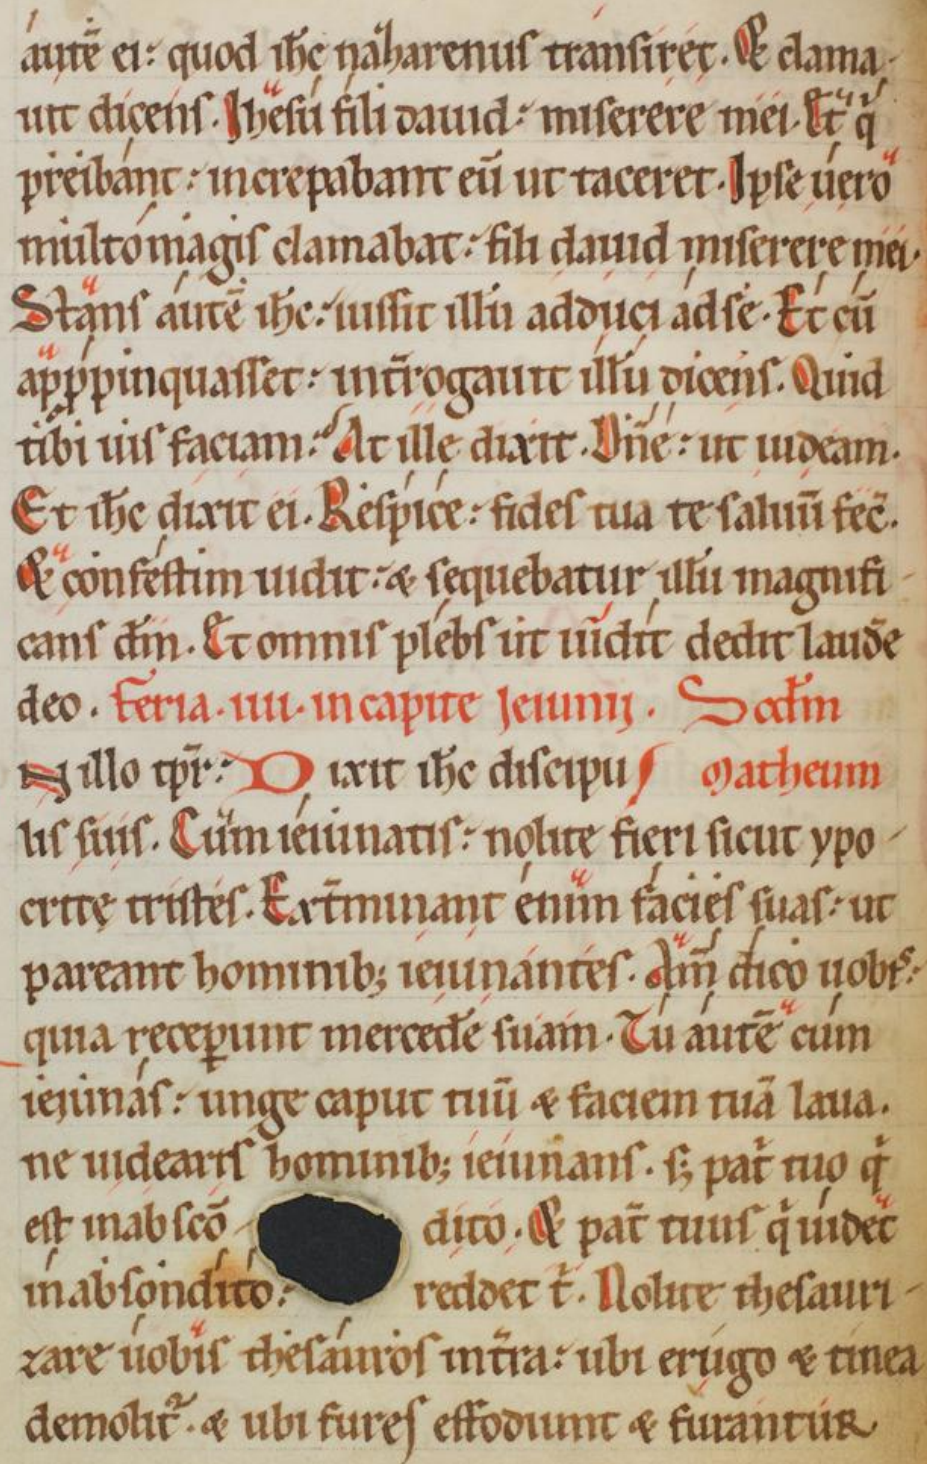 autē ei: quod ih̄c nazarenus transiret. Et clama-
uit dicens. Ihesu fili dauid: miserere mei. Et q̇
preibant: increpabant eū ut taceret. Ipse uero
multo magis clamabat: fili dauid miserere mei.
Stans autē ih̄c: iussit illū adduci ad se. Et cū
appropinquasset: int̄rogauit illū dicens. Quid
tibi uis faciam? At ille dixit. Dn̄e: ut uideam.
Et ih̄c dixit ei. Respice: fides tua te saluū fec̄.
& confestim uidit: & sequebatur illū magnifi-
cans dm̄. Et omnis plebs ut uidit dedit laudē
deo. Feria. iiii. in capite Ieiunij. Scdm̄
IN illo tp̄r: Dixit ih̄c discipu Matheum
lis suis. Cum ieiunatis: nolite fieri sicut ypo-
critę tristes. Ext̄minant enim facies suas: ut
pareant hominib; ieiunantes. Am̄ dico uobis:
quia receperunt mercedē suam. Tu autē cum
ieiunas: unge caput tuū & faciem tuā laua.
ne uidearis hominib; ieiunans. s; pat̄ tuo q̇
est in abscō- dito. & pat̄ tuus q̇ uidet
in absondito: reddet t̄. Nolite thesauri-
zare uobis thesauros in t̄ra: ubi erugo & tinea
demolit̄. & ubi fures effodiunt & furantur